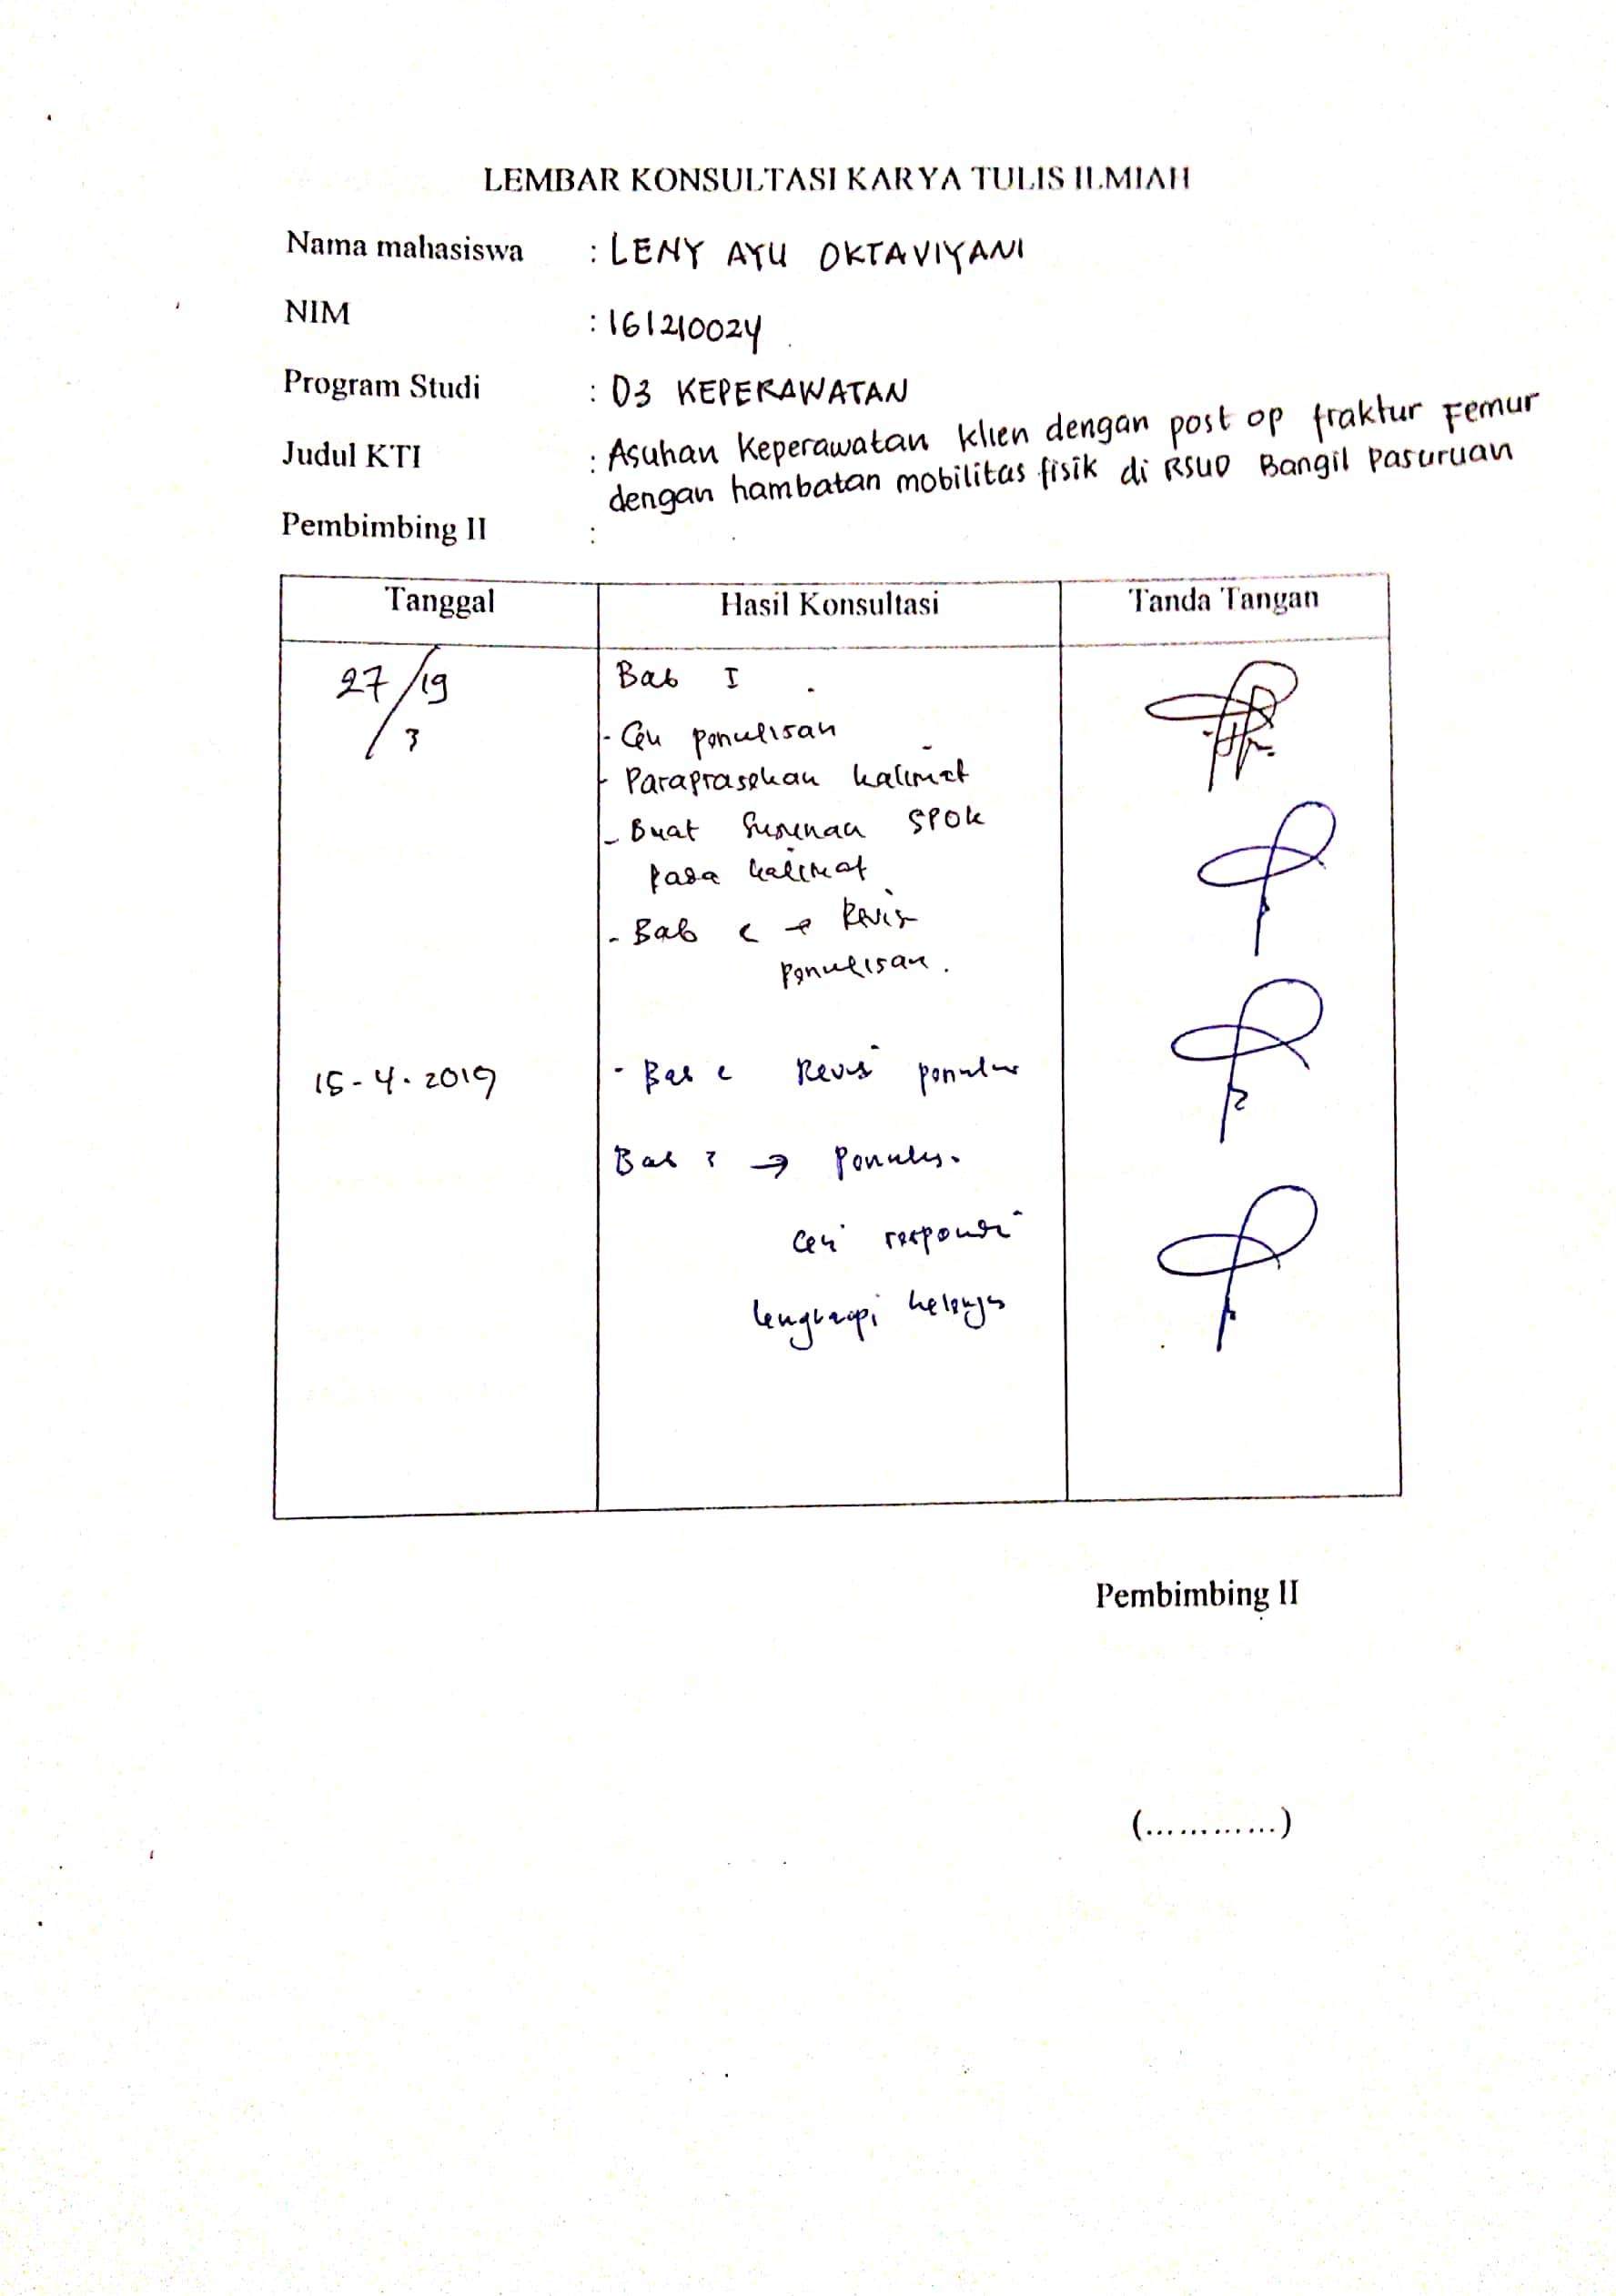 LEMBAR KONSULTASI KARYA TULIS ILMIAH
Nama mahasiswa : LENY AYU OKTAVIYANI
NIM : 161210024
Program Studi : D3 KEPERAWATAN
Judul KTI : Asuhan Keperawatan klien dengan post op fraktur Femur
dengan hambatan mobilitas fisik di RSUD Bangil Pasuruan
Pembimbing II :
Tanggal Hasil Konsultasi Tanda Tangan
27/19 Bab I
3
- Cek penulisan
- Paraprasekan kalimat
- Buat Susunan SPOK
pada kalimat
- Bab → Revisi
penulisan.
15-4-2019 - Bab Revisi
Bab →
Cek
lengkapi
Pembimbing II
(............)